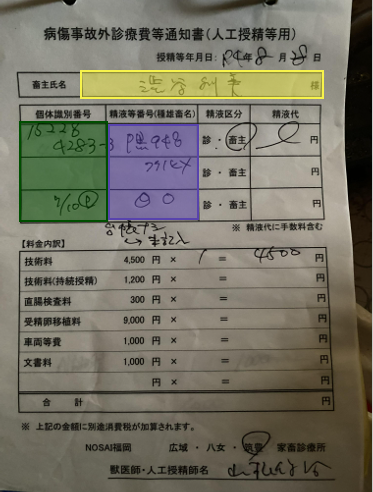 病傷事故外診療費等通知書(人工授精等用)
授精等年月日: R4年 8月 28日
畜主氏名 様
個体識別番号 精液等番号(種雄畜名) 精液区分 精液代
15228 4283-3 P黒948 診・畜主 円
診・畜主 円
診・畜主 円
※ 精液代に手数料含む
【料金内訳】
技術料 4,500 円 × 1 = 4500 円
技術料(持続授精) 1,200 円 × = 円
直腸検査料 300 円 × = 円
受精卵移植料 9,000 円 × = 円
車両等費 1,000 円 × = 円
文書料 1,000 円 × = 円
円 × = 円
合計 円
※ 上記の金額に別途消費税が加算されます。
NOSAI福岡 広域・八女・筑豊 家畜診療所
獣医師・人工授精師名